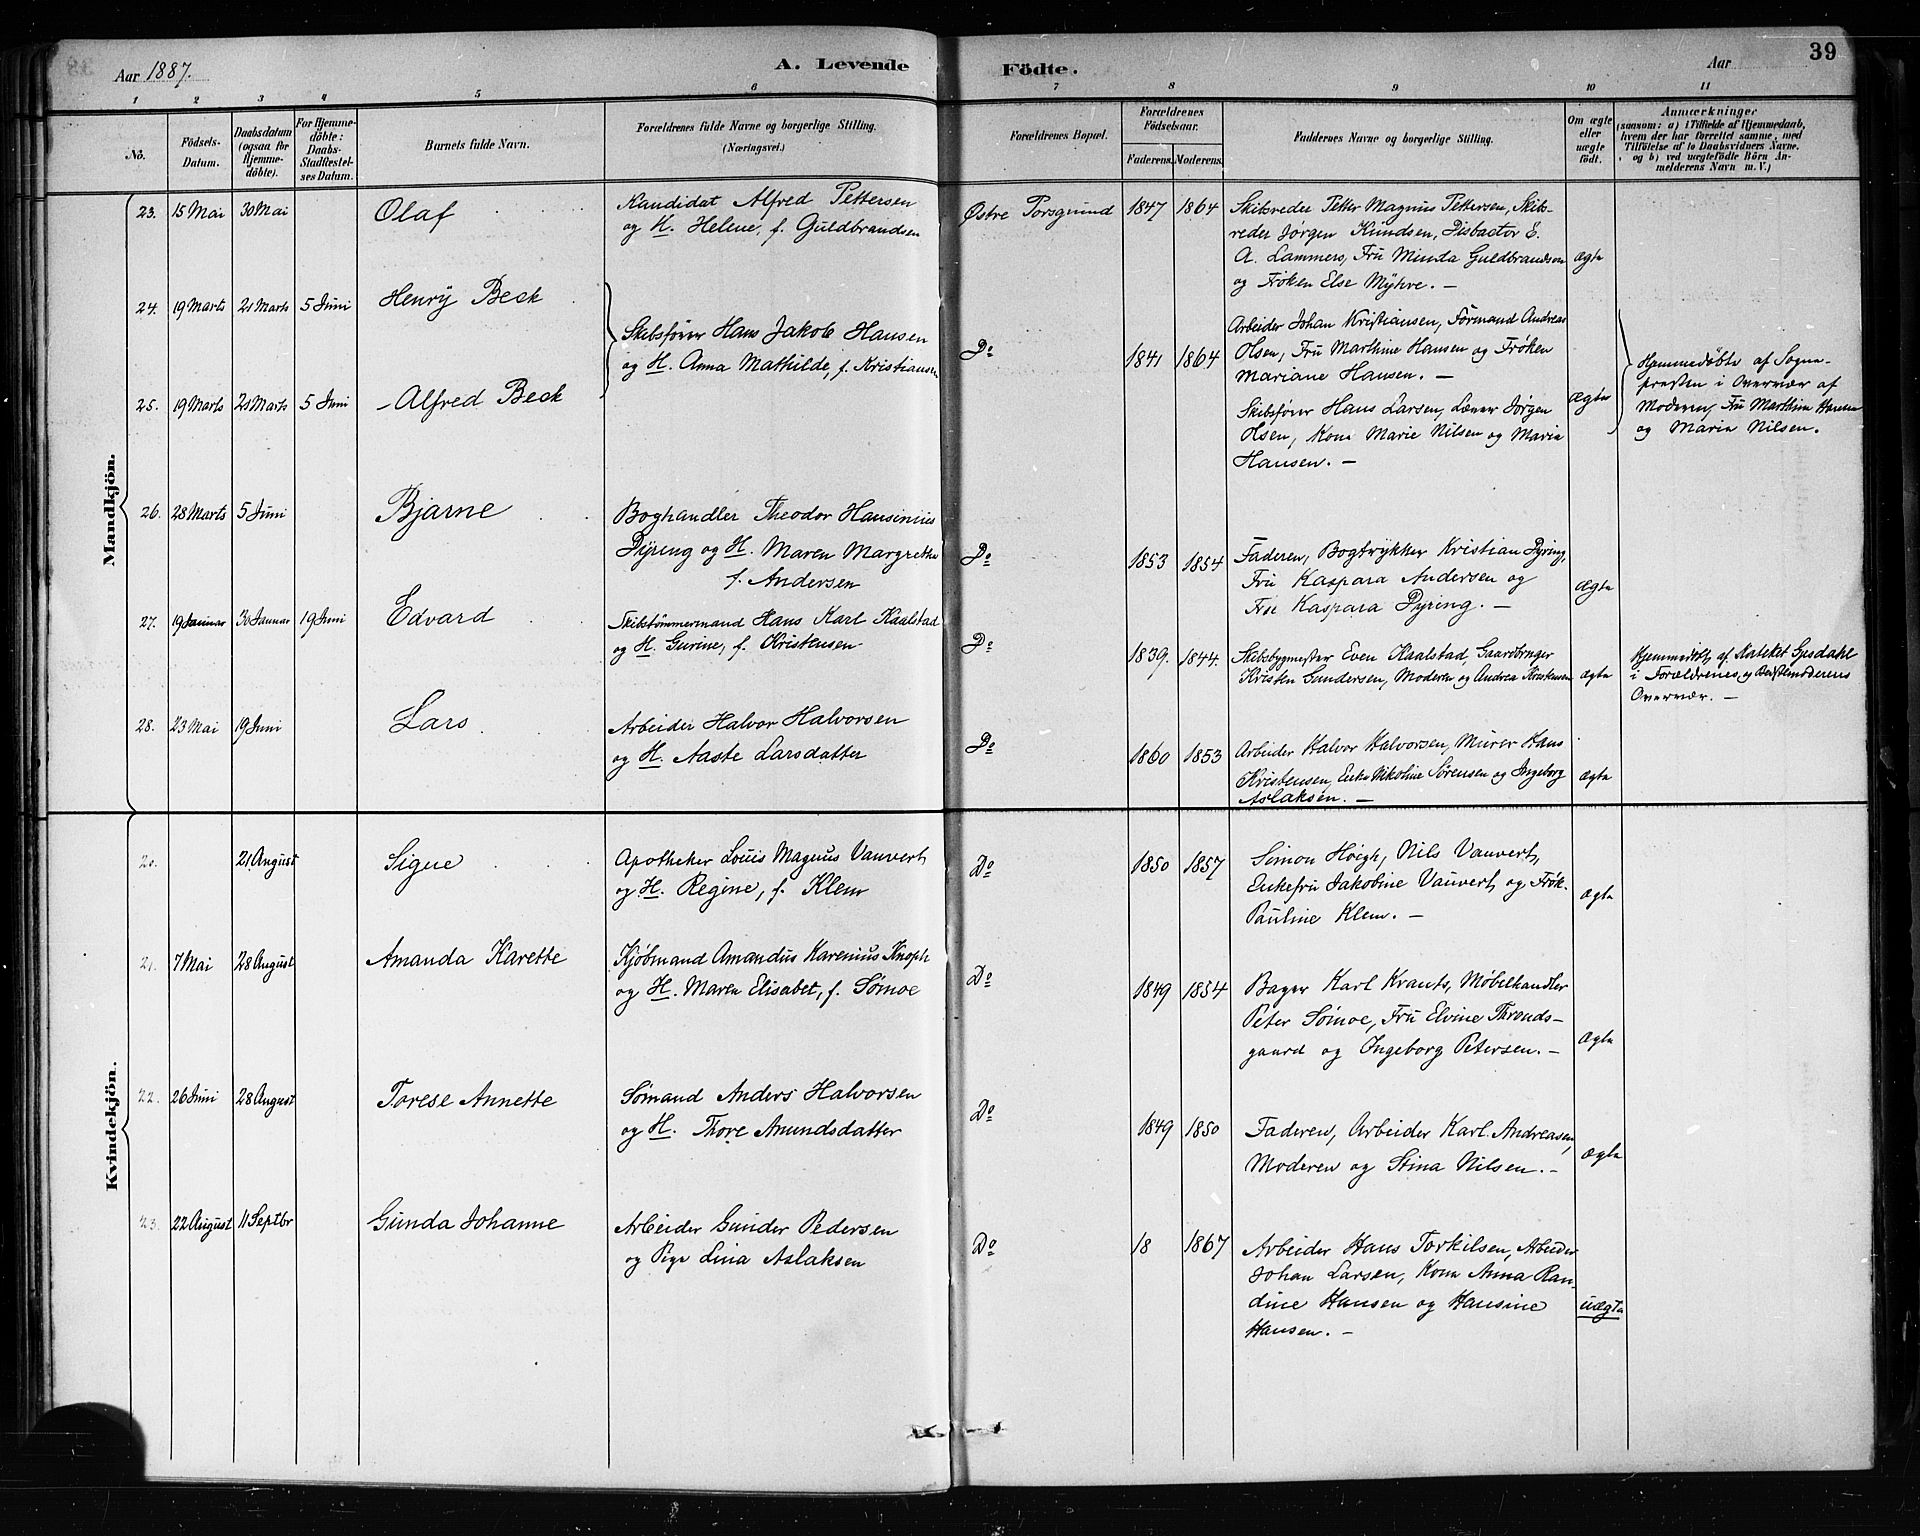 Aar 1887. A. Levende Födte. Aar 39
1 2 3 4 5 6 7 8 9 10 11
No.
Födsels-
Datum.
Daabsdatum
(ogsaa for
Hjemme-
döbte).
For Hjemme-
döbte:
Daabs-
Stadfæstel-
ses Datum.
Barnets fulde Navn.
Forældrenes fulde Navne og borgerlige Stilling.
(Næringsvei.)
Forældrenes Bopæl.
Forældrenes
Födselsaar.
Faderens. Moderens.
Faddernes Navne og borgerlige Stilling.
Om ægte
eller
uægte
födt.
Anmærkninger
(saasom: a) i Tilfælde af Hjemmedaab,
hvem der har forrettet samme, med
Tilföielse af to Daabsvidners Navne.
og b) ved uægtefödte Börn An-
melderens Navn m. V.)
Mandkjön.
23. 15 Mai 30 Mai Olaf
Kandidat Alfred Pettersen
og H. Helene, f. Guldbrandsen
Østre Porsgrund 1847 1864
Skibsreder Petter Magnus Pettersen, Skibs-
reder Jørgen Knudsen, Disbactor E.
A. Lammers, Fru Minda Guldbrandsen
og Frøken Else Myhre. —
ægte
24. 19 Marts 21 Marts 5 Juni Henry Beck
Skibsfører Hans Jakob Hansen
og H. Anna Mathilde, f. Kristiansen
Do 1841 1864
Arbeider Johan Kristiansen, Formand Andreas
Olsen, Fru Marthine Hansen og Frøken
Mariane Hansen. —
25. 19 Marts 21 Marts 5 Juni – Alfred Beck
Skibsfører Hans Larsen, Lærer Jørgen
Olsen, Kone Marie Nilsen og Maria
Hansen. —
ægte
Hjemmedøbte af Sogne-
presten i Overvær af
Moderen, Fru Marthine Hansen
og Maria Nilsen.
26. 28 Marts 5 Juni Bjarne
Boghandler Theodor Hansinius
Dyring og H. Maren Margrethe
f. Andersen
Do 1853 1854
Faderen, Bogtrykker Kristian Dyring,
Fru Kaspara Andersen og
Frøk Kaspara Dyring. —
ægte
27. 19 Januar 30 Januar 19 Juni Edvard
Skibstømmermand Hans Karl Kaalstad
og H. Gurine, f. Kristensen
Do 1839. 1844.
Skibsbygmester Even Kaalstad, Gaardbruger
Kristen Gundersen, Moderen og Andrea Kristensen
ægte
Hjemmedøbt af Kateket Gjesdahl
i Forældrenes og Bedstemoderens
Overvær. —
28. 23 Mai 19 Juni Lars
Arbeider Halvor Halvorsen
og H. Aaste Larsdatter
Do 1860 1853
Arbeider Halvor Halvorsen, Murer Hans
Kristensen, Enke Nikoline Sørensen og Ingeborg
Aslaksen. —
ægte
Kvindekjön.
20. 21 August Signe
Apotheker Louis Magnus Vauvert
og H. Regine, f. Klem
Do 1850 1857
Simon Høegh, Nils Vauvert,
Enkefru Jakobine Vauvert og Frøk.
Pauline Klem. —
ægte
21. 7 Mai 28 August Amanda Karette
Kjøbmand Amandus Karenius Knoph
og H. Maren Elisabet, f. Sømoe
Do 1849 1854
Bager Karl Krants, Møbelhandler
Peter Sømoe, Fru Elvine Thronds-
gaard og Ingeborg Petersen. —
ægte
22. 26 Juni 28 August Torese Annette
Sømand Anders Halvorsen
og H. Thore Amundsdatter
Do 1849 1850
Faderen, Arbeider Karl Andreasen,
Moderen og Stina Nilsen. —
ægte
23. 22 August 11 Septbr Gunda Johanne
Arbeider Gunder Pedersen
og Pige Lina Aslaksen
Do 18 1867
Arbeider Hans Torkilsen, Arbeider
Johan Larsen, Kone Anna Ran-
dine Hansen og Hansine
Hansen. —
uægte